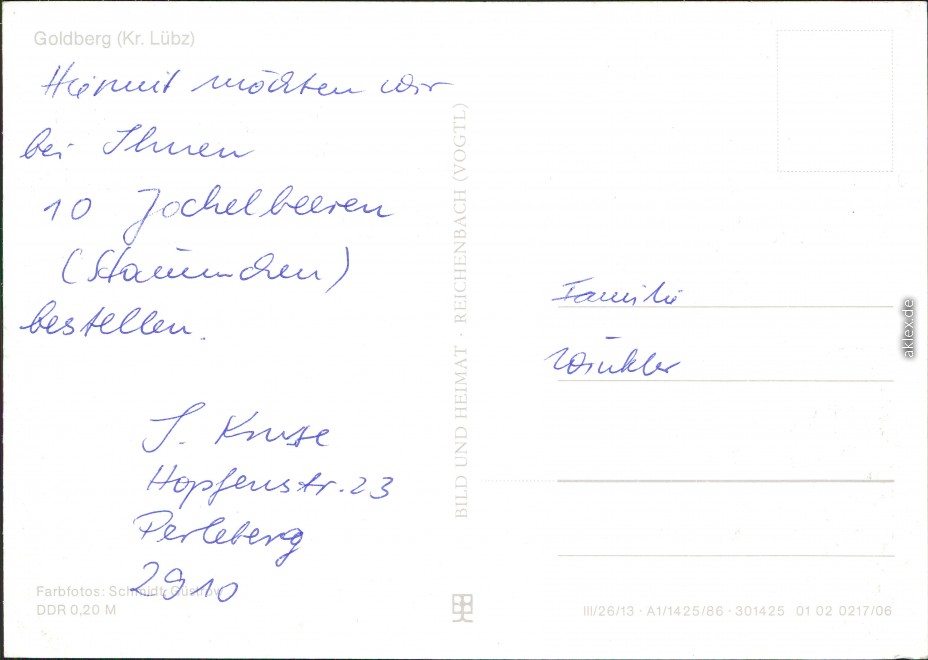 Goldberg (Kr. Lübz)
Hiermit möchten wir
bei Ihnen
10 Jochelbeeren
(Stämmchen)
bestellen.
J. Kruse
Hopfenstr. 23
Perleberg
2910
Farbfotos: Schmidt, Güstrow
DDR 0,20 M
BILD UND HEIMAT · REICHENBACH (VOGTL)
Familie
Winkler
III/26/13 · A1/1425/86 · 301425 01 02 0217/06
aklex.de